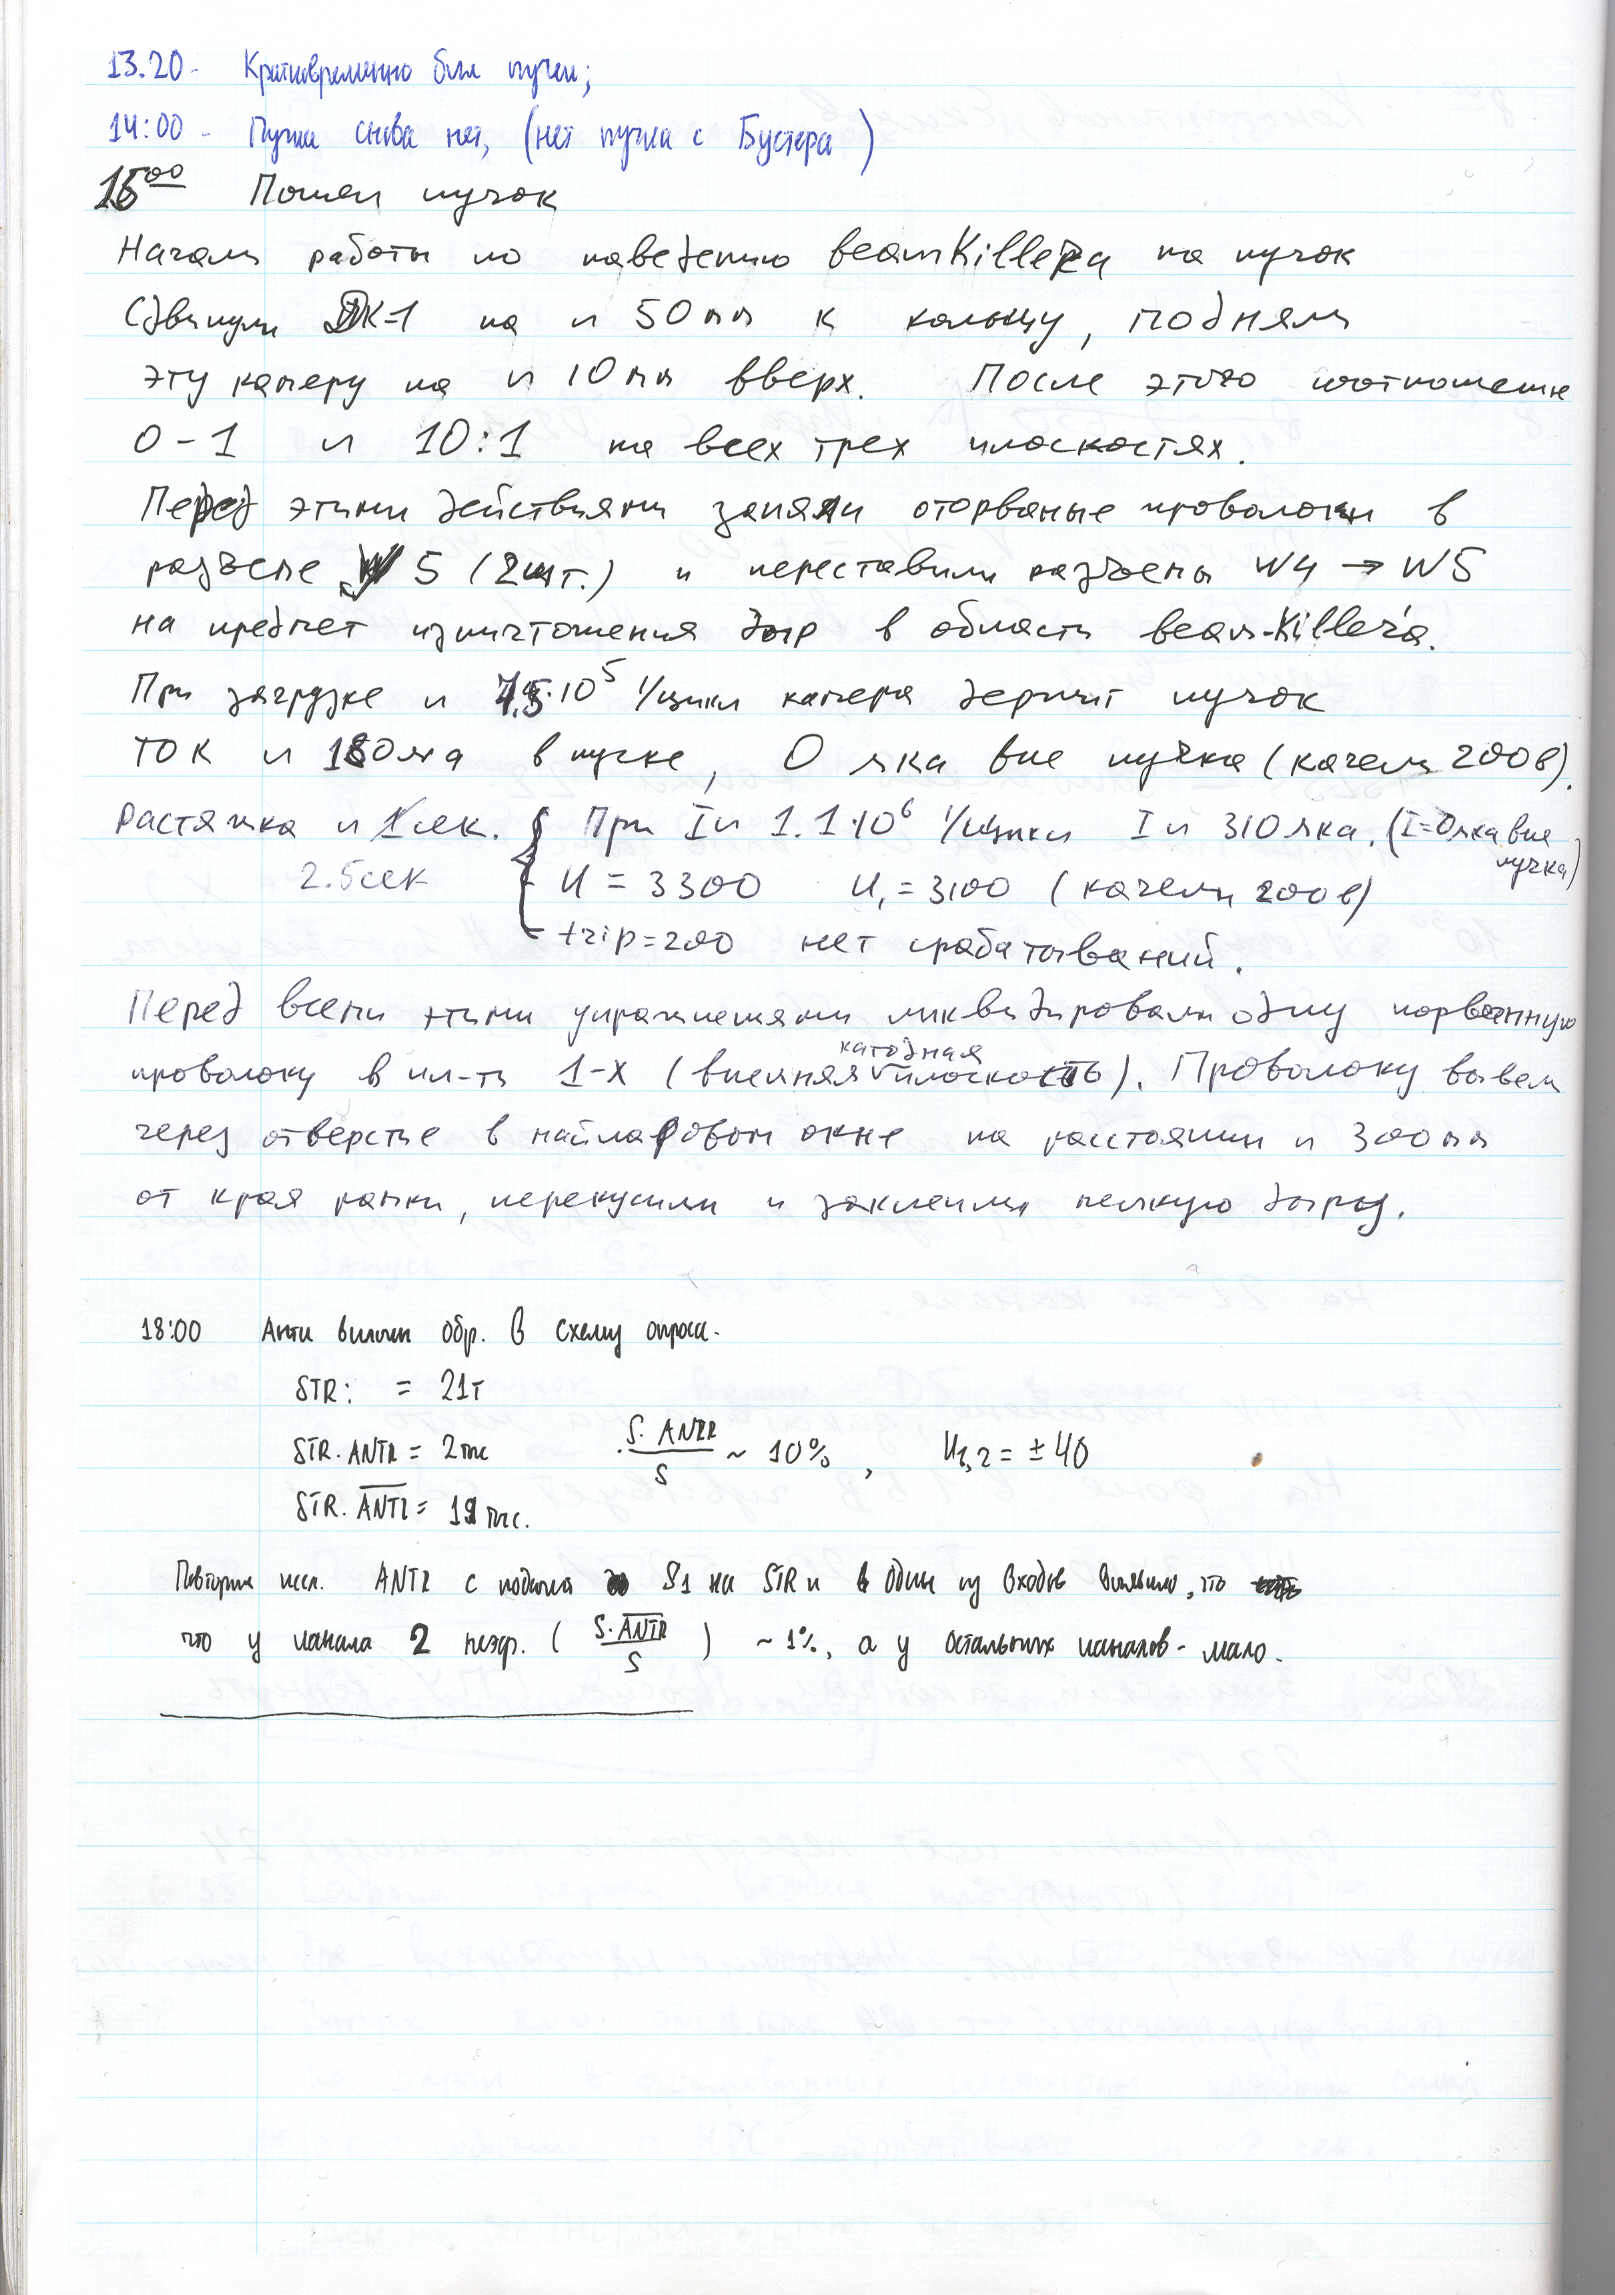 13.20 - Кратковременно был пучок;
14:00 - Пучка снова нет, (нет пучка с Бустера)
16⁰⁰ Пошел пучок
Начали работы по наведению beamKillera на пучок
Сдвинули ДК-1 на ~ 50 мм к кольцу, подняли
эту камеру на ~ 10 мм вверх. После этого соотношение
0-1 ~ 10:1 на всех трех плоскостях.
Перед этими действиями запаяли оторваные проволочки в
разъеме W5 (2шт.) и переставили разъемы W4 → W5
на предмет изничтожения дыр в области beam-Killer'a.
При загрузке ~ ·10⁵ 1/цикл камера держит пучок
ток ~ мка в пучке, 0 мка вне пучка (качели 200в).
Растяжка ~ сек. { При I ~ 1.1·10⁶ 1/цикл I ~ 310 мка. (I=0мка вне пучка)
2.5сек U = 3300 U₁ = 3100 (качели 200в)
- trip=200 нет срабатываний.
Перед всеми этими упражнениями ликвидировали одну порванную
проволоку в пл-ти 1-X (внешняя катодная плоскость). Проволоку вывели
через отверстие в майларовом окне на расстоянии ~ 300 мм
от края рамки, перекусили и заклеили мелкую дырку.
18:00 Анти включен обр. в схему опроса.
STR: = 21т
STR.ANTI = 2тыс S·ANTI/S ~ 10%, U₁,₂ = ±40
STR.A̅N̅T̅I̅ = 19 тыс.
Повторное иссл. ANTI с подачей S1 на STR и в один из входов выявило, что
что у канала 2 неэф. (S·A̅N̅T̅I̅/S) ~ 1%, а у остальных каналов - мало.